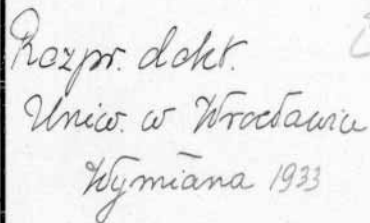 Rozpr. dokt.
Uniw. w Wrocławiu
Wymiana 1933